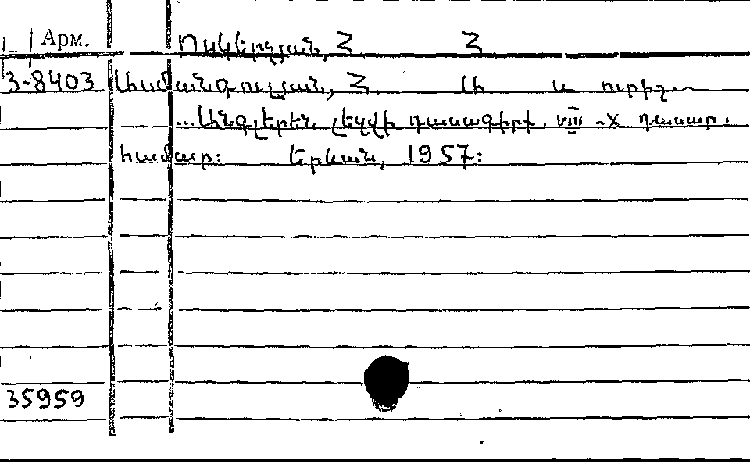 Арм. Ոսկերչյան, Հ. Հ.
3-8403 Ամանգուլյան, Հ. Ա. և ուրիշ.
...Անգլերեն լեզվի դասագիրք VIII-X դասար.
համար: Երևան, 1957:
35959